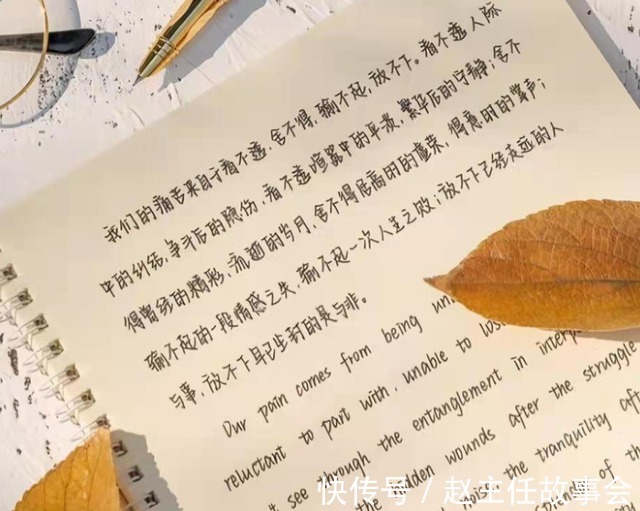 我们的痛苦来自于看不透,舍不得,输不起,放不下。看不透人际
中的纠结,争斗后的隐伤,看不透喧嚣中的平淡,繁华后的宁静;舍不
得曾经的精彩,流逝的岁月,舍不得居高时的虚荣,得意时的掌声;
输不起的一段情感之失,输不起一次人生之败;放不下已经走远的人
与事,放不下早已尘封的是与非。
Our pain comes from being
reluctant to part with, unable to
see through the entanglement in
wounds after the struggle
miss the tranquility after
of the
快传号/赵主任故事会